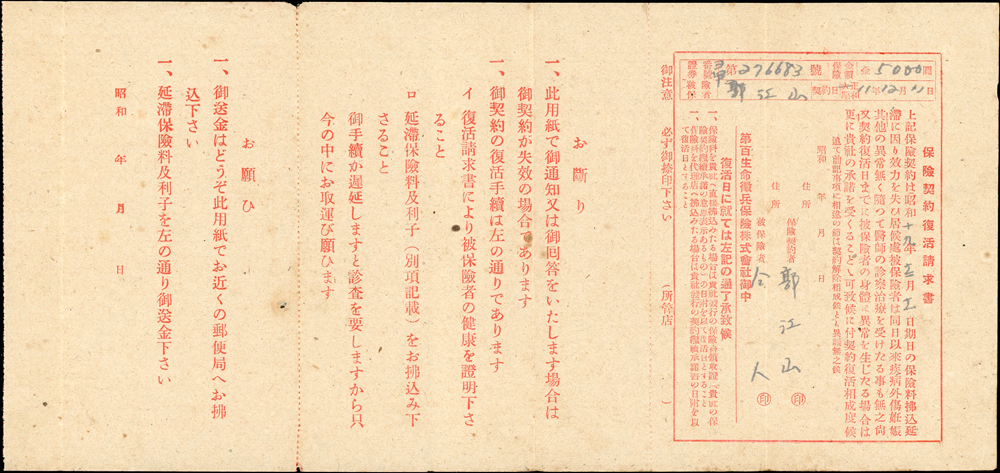 保險契約復活請求書
金 5000 圓
保險金額
昭和 11年12月11日
契約日
第276683號
證券番號
被保險者
郭江山
上記保險契約は昭和十九年 月 日期日の保險料拂込延
滯に因り效力を失ひ居候處被保險者は同日以來疾病外傷姙娠
其他の異常無く隨つて醫師の診察治療を受けたる事も無之尚
又契約復活日までに被保險者の身體に異常を生じたる場合は
更に貴社の承諾を受くることゝ可致候に付契約復活相成度候
追て前記事項に相違の節は契約解除相成候とも異議無之候
昭和 年 月 日
住所
保險契約者 郭江山 ㊞
住所
被保險者 仝人 ㊞
第百生命徵兵保險株式會社御中
復活日に就ては左記の通り承致候
一、保險料を貴社へ直接拂込みたる場合は貴社發行の保險料領收證(貴社の保
險契約繼續承諾の意思表示あるもの)の日附を以て復活日とすること
一、保險料を代理店へ拂込みたる場合は貴社發行の契約繼續承諾書の日附を以
て復活日とすること
御注意 必ず御捺印下さい (所管店 )
お斷り
一、此用紙で御通知又は御回答をいたします場合は
御契約が失效の場合であります
一、御契約の復活手續は左の通りであります
イ 復活請求書により被保險者の健康を證明下さ
ること
ロ 延滯保險料及利子(別項記載)をお拂込み下
さること
御手續が遲延しますと診査を要しますから只
今の中にお取運び願ひます
お願ひ
一、御送金はどうぞ此用紙でお近くの郵便局へお拂
込下さい
一、延滯保險料及利子を左の通り御送金下さい
昭和 年 月 日